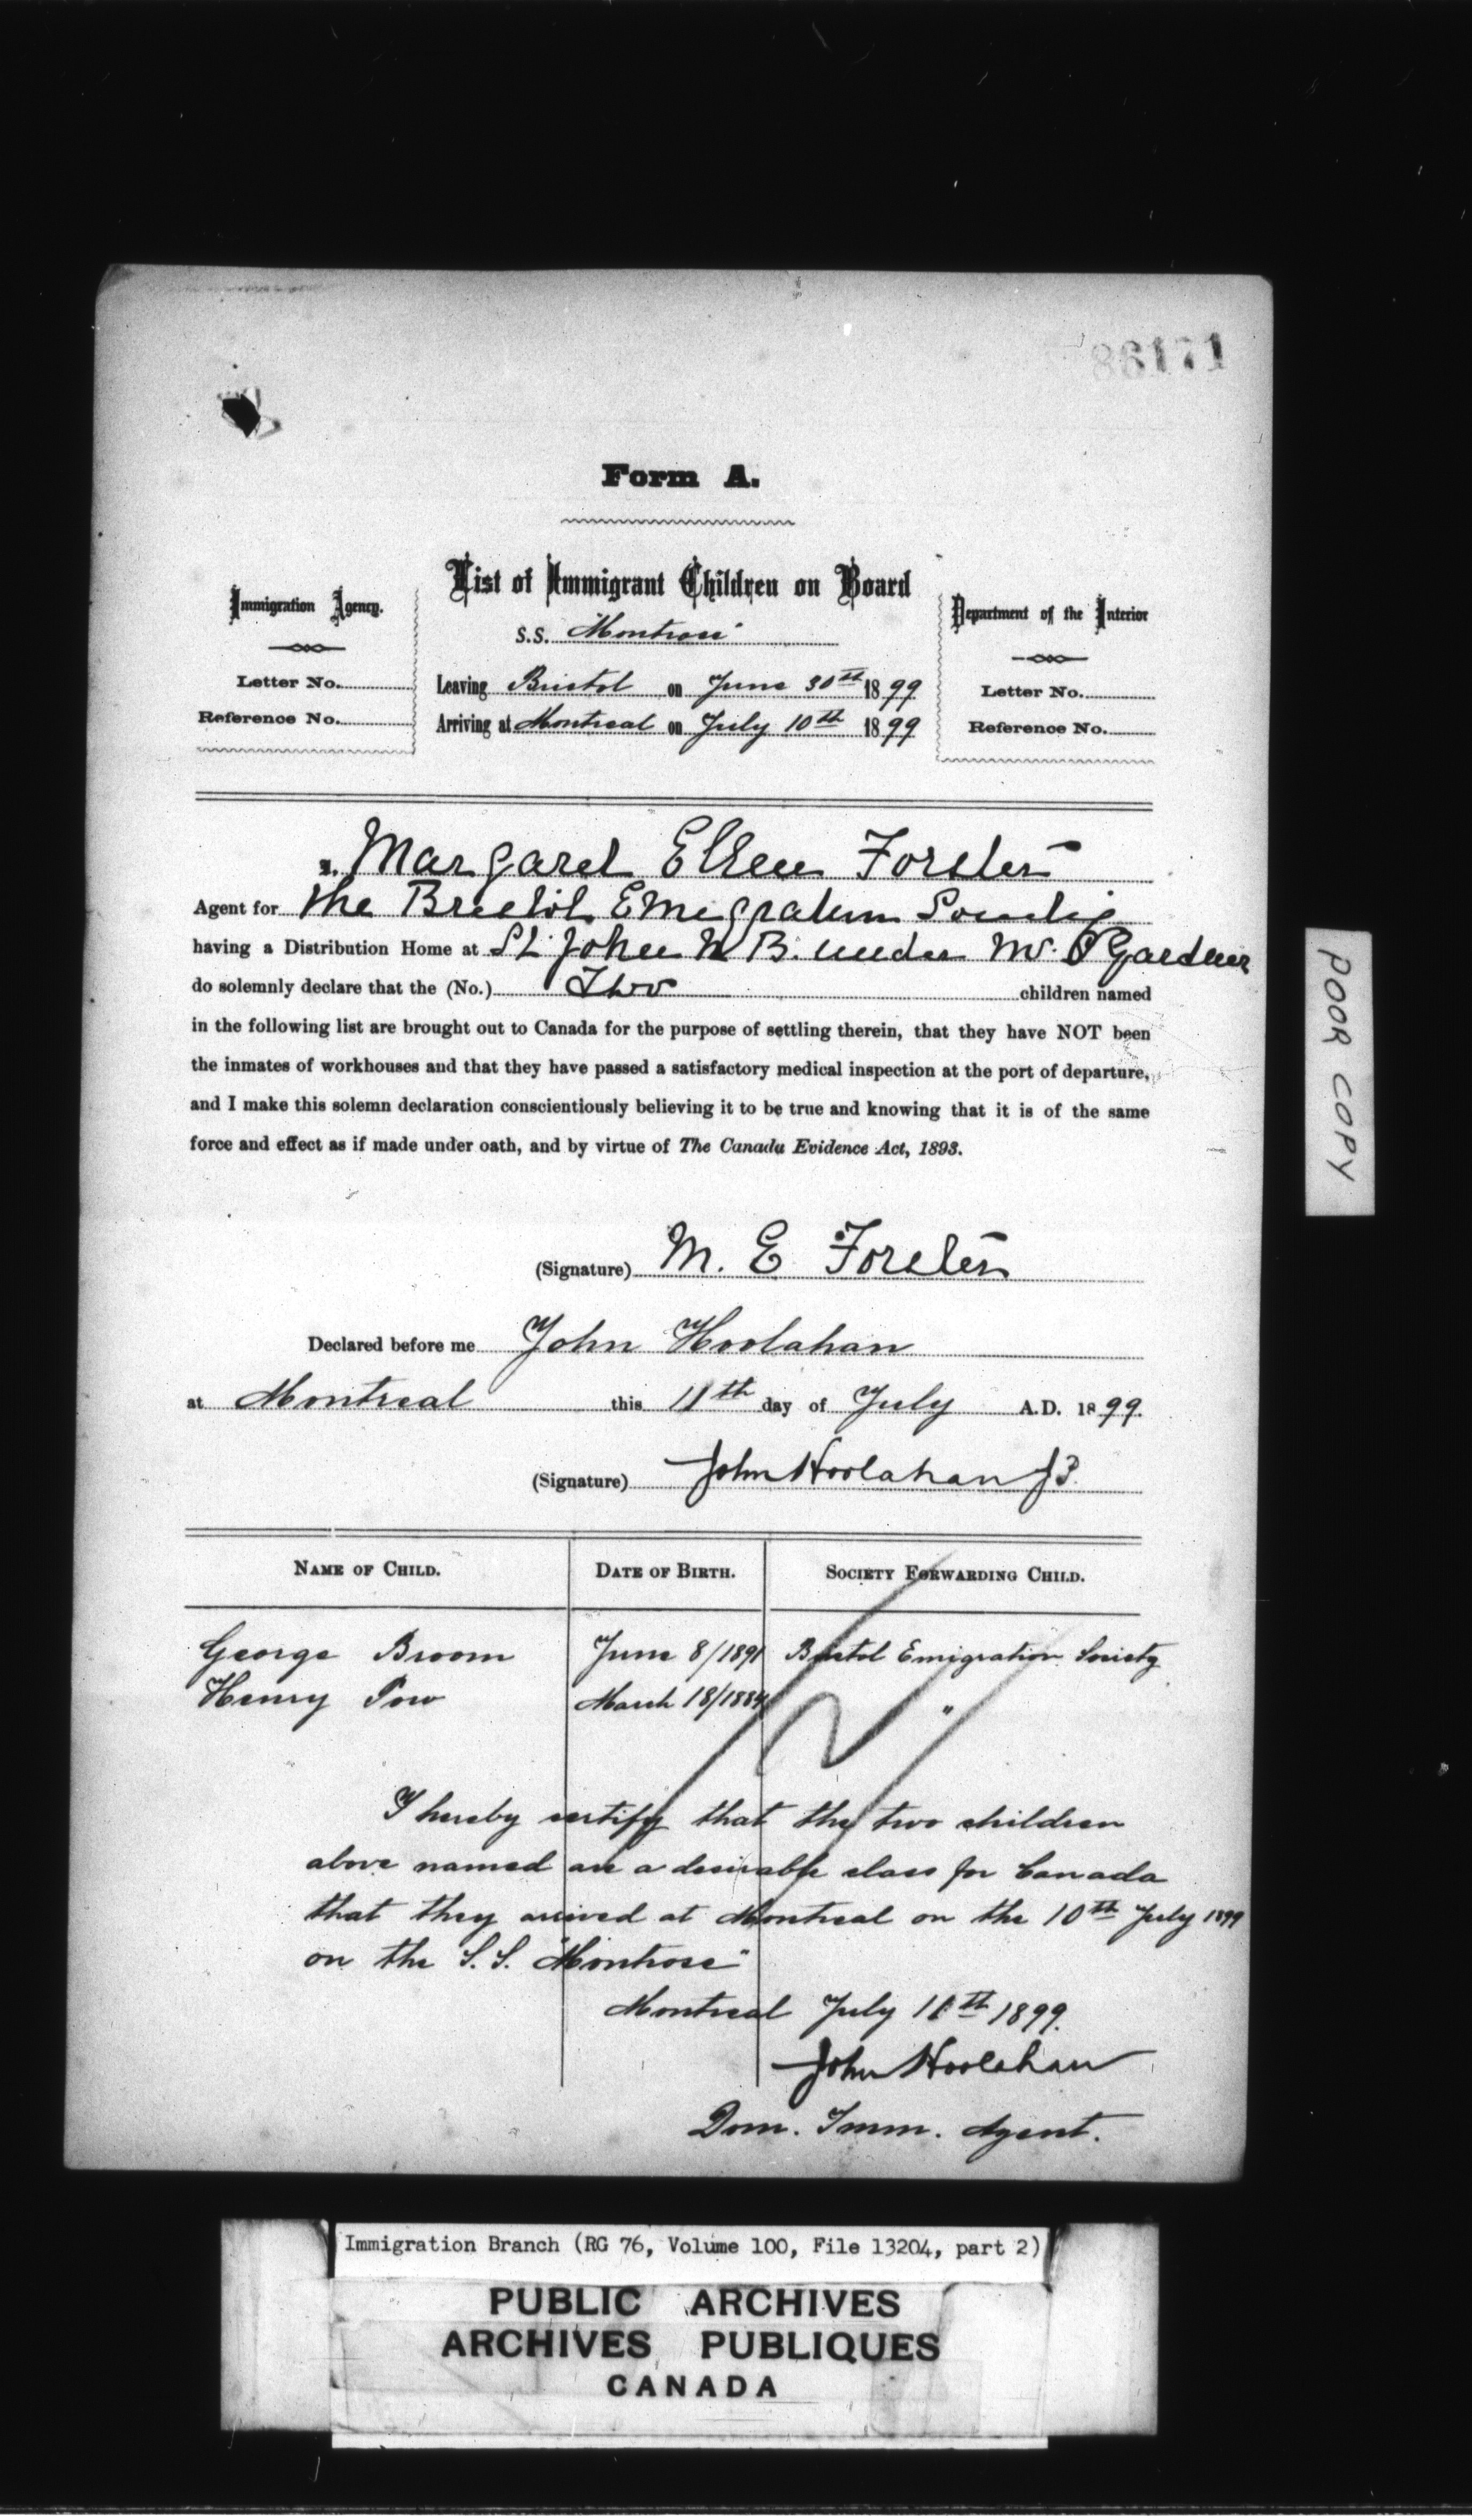 86171
Form A.
List of Immigrant Children on Board
S.S. "Montrose"
Leaving Bristol on June 30th 1899
Arriving at Montreal on July 10th 1899
Immigration Agency.
Letter No.
Reference No.
Department of the Interior
Letter No.
Reference No.
I, Margaret Ellen Forster
Agent for The Bristol Emigration Society
having a Distribution Home at St. John N B. under Mr. Gardner
do solemnly declare that the (No.) Two children named
in the following list are brought out to Canada for the purpose of settling therein, that they have NOT been
the inmates of workhouses and that they have passed a satisfactory medical inspection at the port of departure,
and I make this solemn declaration conscientiously believing it to be true and knowing that it is of the same
force and effect as if made under oath, and by virtue of The Canada Evidence Act, 1893.
(Signature) M. E Forster
Declared before me John Hoolahan
at Montreal this 11th day of July A.D. 1899.
(Signature) John Hoolahan JP.
NAME OF CHILD. DATE OF BIRTH. SOCIETY FORWARDING CHILD.
George Broom June 8/1891 Bristol Emigration Society
Henry Pow March 18/1884 "
I hereby certify that the two children
above named are a desirable class for Canada
that they arrived at Montreal on the 10th July 1899
on the S.S. "Montrose"
Montreal July 11th 1899.
John Hoolahan
Dom. Imm. Agent.
POOR COPY
Immigration Branch (RG 76, Volume 100, File 13204, part 2)
PUBLIC ARCHIVES
ARCHIVES PUBLIQUES
CANADA